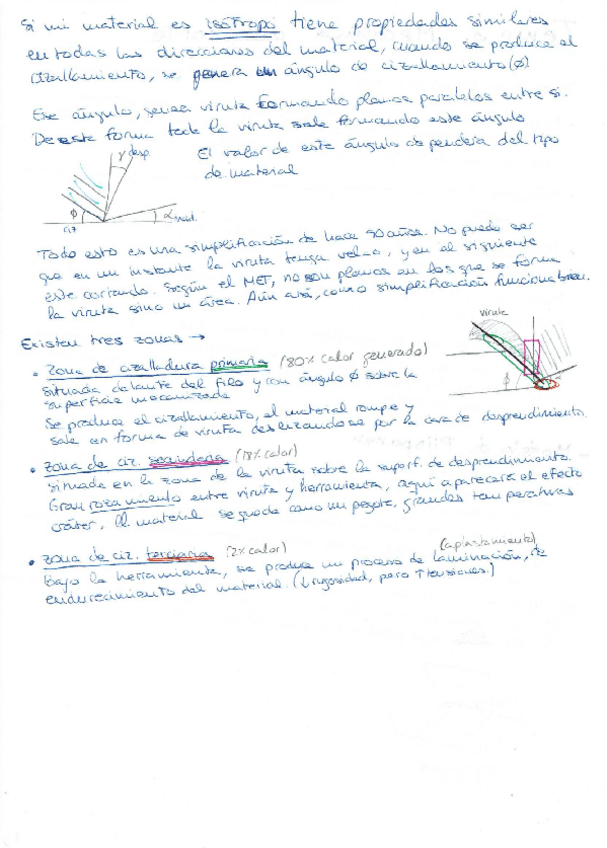 Si mi material es isótropo tiene propiedades similares
en todas las direcciones del material, cuando se produce el
cizallamiento, se genera un ángulo de cizallamiento (ø)
Ese ángulo, genera viruta formando planos paralelos entre si.
De este forma toda la viruta sale formando este ángulo
γ desp.
El valor de este ángulo dependera del tipo
de material
ϕ
α incid.
Todo esto es una simplificación de hace 50 años. No puede ser
que en un instante la viruta tenga veloc, y en el siguiente
este cortando. Según el MET, no son planos en los que se forma
la viruta sino un área. Aún así, como simplificación funciona bien.
Existen tres zonas →
viruta
ϕ
• Zona de cizalladura primaria (80% calor generado)
situada delante del filo y con ángulo ø sobre la
superficie mecanizada
Se produce el cizallamiento, el material rompe y
sale en forma de viruta deslizandose por la cara de desprendimiento.
• Zona de ciz. secundaria (18% calor)
situada en la zona de la viruta sobre la superf. de desprendimiento.
Gran rozamiento entre viruta y herramienta, aquí aparecerá el efecto
cráter, El material se queda como un pegote, grandes temperaturas
• Zona de ciz. terciaria (2% calor)
(aplastamiento)
Bajo la herramienta, se produce un proceso de laminación, de
endurecimiento del material. (↓rugosidad, pero ↑tensiones.)